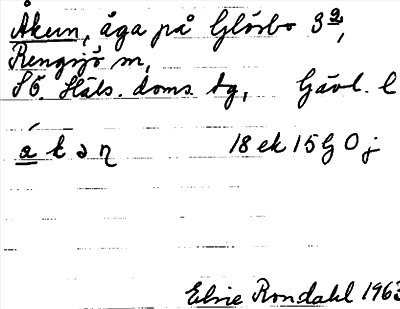 Åkern, åga på Glösbo 3ª,
Rengsjö sn,
SÖ. Häls. doms. tg, Gävl. l
18 ek 15 G 0 j
Elsie Rondahl 1963